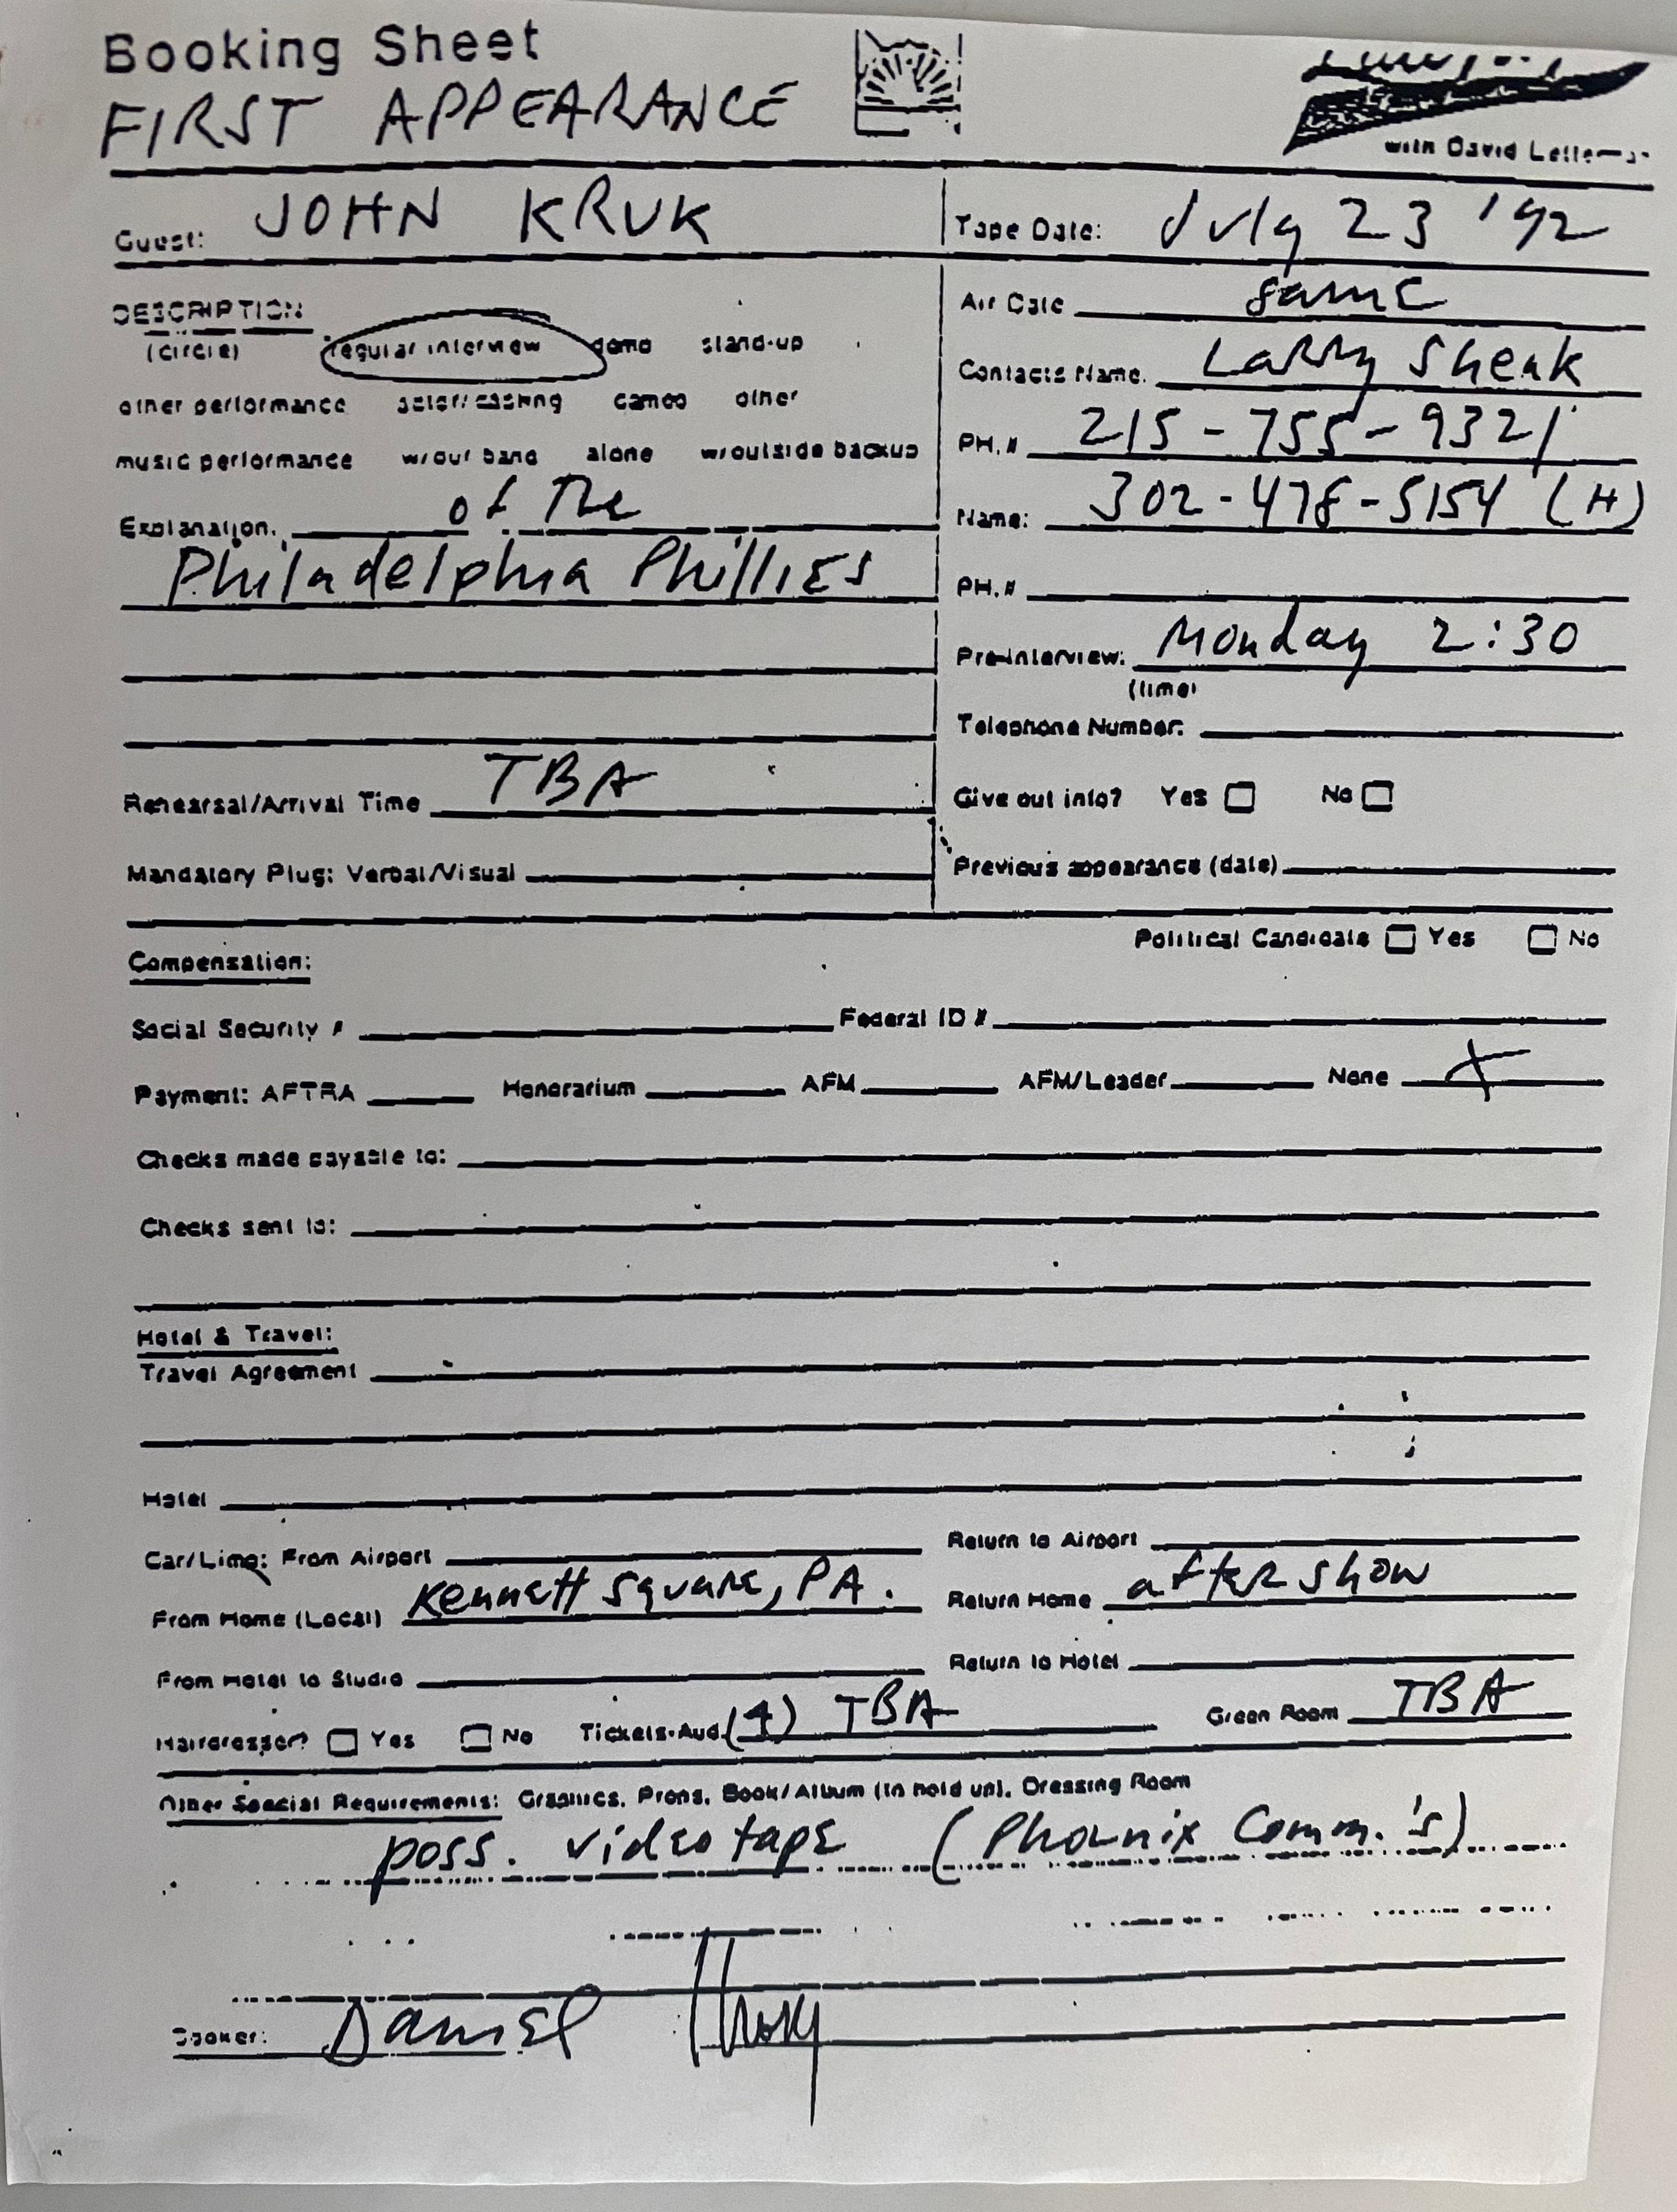 Booking Sheet
FIRST APPEARANCE
with David Letterman
Guest: JOHN KRUK
Tape Date: July 23 '92
DESCRIPTION
(circle) regular interview demo stand-up
other performance actor/casting cameo other
music performance w/our band alone w/outside backup
Explanation. of The
Philadelphia Phillies
Rehearsal/Arrival Time TBA
Mandatory Plug: Verbal/Visual
Air Date same
Contacts Name. Larry Shenk
PH.# 215-755-9321
Name: 302-478-5154 (H)
PH.#
Pre-interview: Monday 2:30
(time)
Telephone Number:
Give out info? Yes No
Previous appearance (date)
Political Candidate Yes No
Compensation:
Social Security # Federal ID #
Payment: AFTRA Honorarium AFM AFM/Leader None X
Checks made payable to:
Checks sent to:
Hotel & Travel:
Travel Agreement
Hotel
Car/Limo: From Airport Return to Airport
From Home (Local) Kennett Square, PA. Return Home after show
From Hotel to Studio Return to Hotel
Hairdresser? Yes No Tickets-Aud. (4) TBA Green Room TBA
Other Special Requirements: Graphics, Props, Book/Album (to hold up), Dressing Room
poss. videotape (Phoenix Comm.'s)
Booker: Daniel